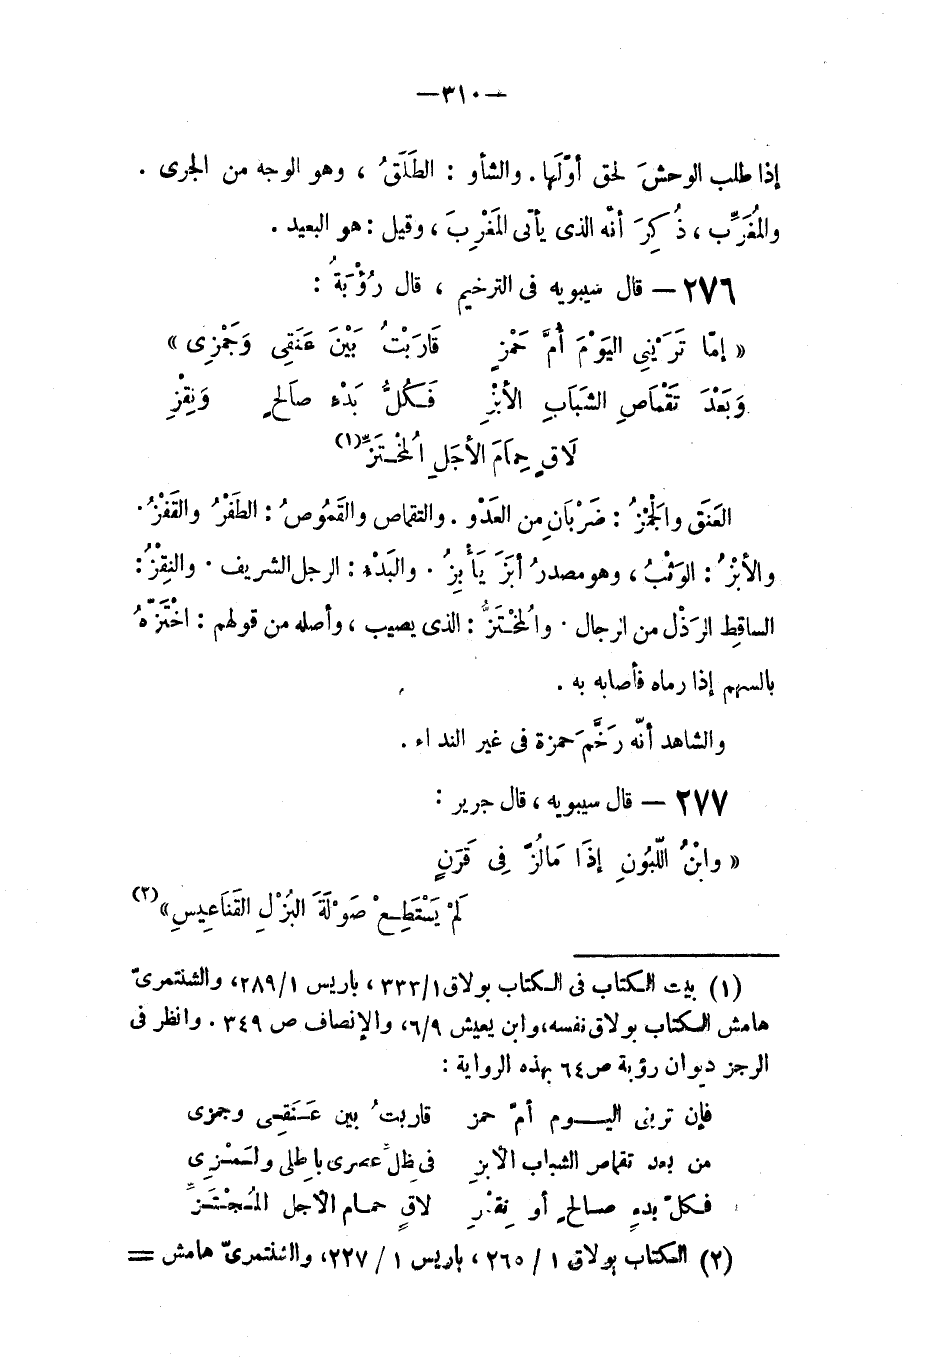 —٣١٠—
إذا طلب الوحشَ لحق أوّلَها. والشأو : الطَلَقُ ، وهو الوجه من الجرى .
والمُغَرِّب ، ذُكِرَ أنّه الذى يأتى المَغْرِبَ ، وقيل : هو البعيد .
٢٧٦ — قال سيبويه فى الترخيم ، قال رُؤْبَةُ :
« إمّا تَرَيْنِى اليَوْمَ أُمَّ حَمْزِ قَارَبْتُ بَيْنَ عَنَقِى وَجَمْزِى »
وَبَعْدَ تَقْمَاصِ الشَبَابِ الأَبْزِ فَكُلُّ بَدْءٍ صَالحٍ وَنِقْزِ
لَاقٍ حِمَامَ الأَجَلِ المُخْتَزِّ(١)
العَنَق والجَمْزُ : ضَرْبَانِ من العَدْو . والتقماص والقَمُوصُ : الطَفْرُ والقَفْزُ.
والأبْزُ : الوَثْبُ ، وهو مصدرُ أبَزَ يَأْبِزُ . والبَدْءُ : الرجل الشريف . والنِقْزُ :
الساقِط الرَذْل من الرجال . والمُخْتَزُّ : الذى يصيب ، وأصله من قولهم : اخْتَزَّهُ
بالسهم إذا رماه فأصابه به .
والشاهد أنّه رَخَّمَ حمزة فى غير النداء .
٢٧٧ — قال سيبويه ، قال جرير :
« وابْنُ اللَّبُونِ إذَا مَالُزَّ فِى قَرَنٍ
لَمْ يَسْتَطِعْ صَوْلَةَ البُزْلِ القَنَاعِيسِ»(٢)
(١) بيت الكتاب فى الكتاب بولاق ١/٣٣٣ ، باريس ١/٢٨٩، والشنتمرىّ
هامش الكتاب بولاق نفسه،وابن يعيش ٦/٩، والإنصاف ص ٣٤٩ . وانظر فى
الرجز ديوان رؤبة ص ٦٤ بهذه الرواية :
فإن ترينى اليـــوم أمّ حمز قاربتُ بين عَنَقِى وجمزى
من بعد تقماص الشباب الأبزِ فى ظلّ عصرى باطلى ولَمْزِى
فكلّ بدءٍ صالحٍ أو نِقْزِ لاقٍ حمام الأجل المُجْتَزِّ
(٢) الكتاب بولاق ١ / ٢٦٥ ، باريس ١ / ٢٢٧، والشنتمرىّ هامش =